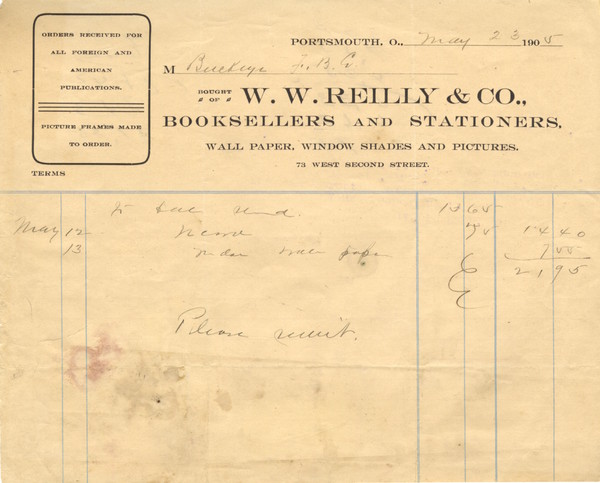 ORDERS RECEIVED FOR
ALL FOREIGN AND
AMERICAN
PUBLICATIONS.
PICTURE FRAMES MADE
TO ORDER.
TERMS
PORTSMOUTH, O., May 23 1905
M Buckeye F. B. Co
BOUGHT OF W. W. REILLY & CO.,
BOOKSELLERS AND STATIONERS,
WALL PAPER, WINDOW SHADES AND PICTURES.
73 WEST SECOND STREET.
To 13 65
May 12 Record 75 14 40
13 paper 7 55
21 95
Please remit.